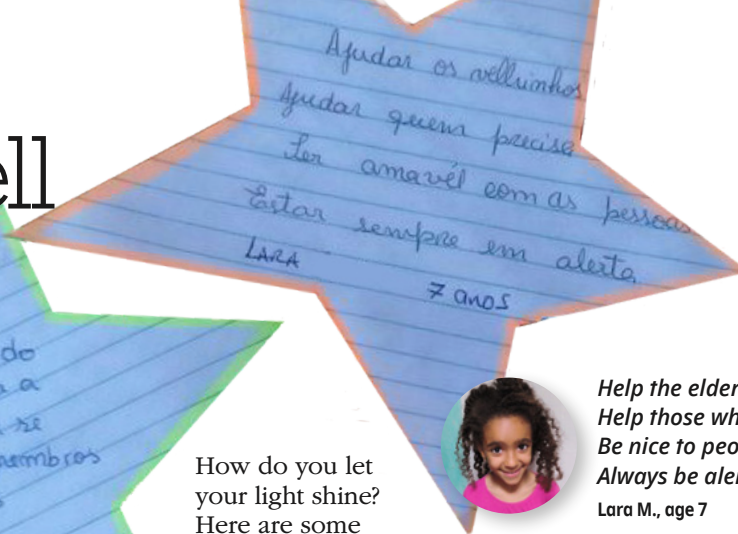 ell
Ajudar os velhinhos
Ajudar quem precisa
Ser amavél com as pessoas
Estar sempre em alerta
LARA
7 anos
do
a
re
membros
How do you let
your light shine?
Here are some
Help the elder
Help those wh
Be nice to peo
Always be aler
Lara M., age 7